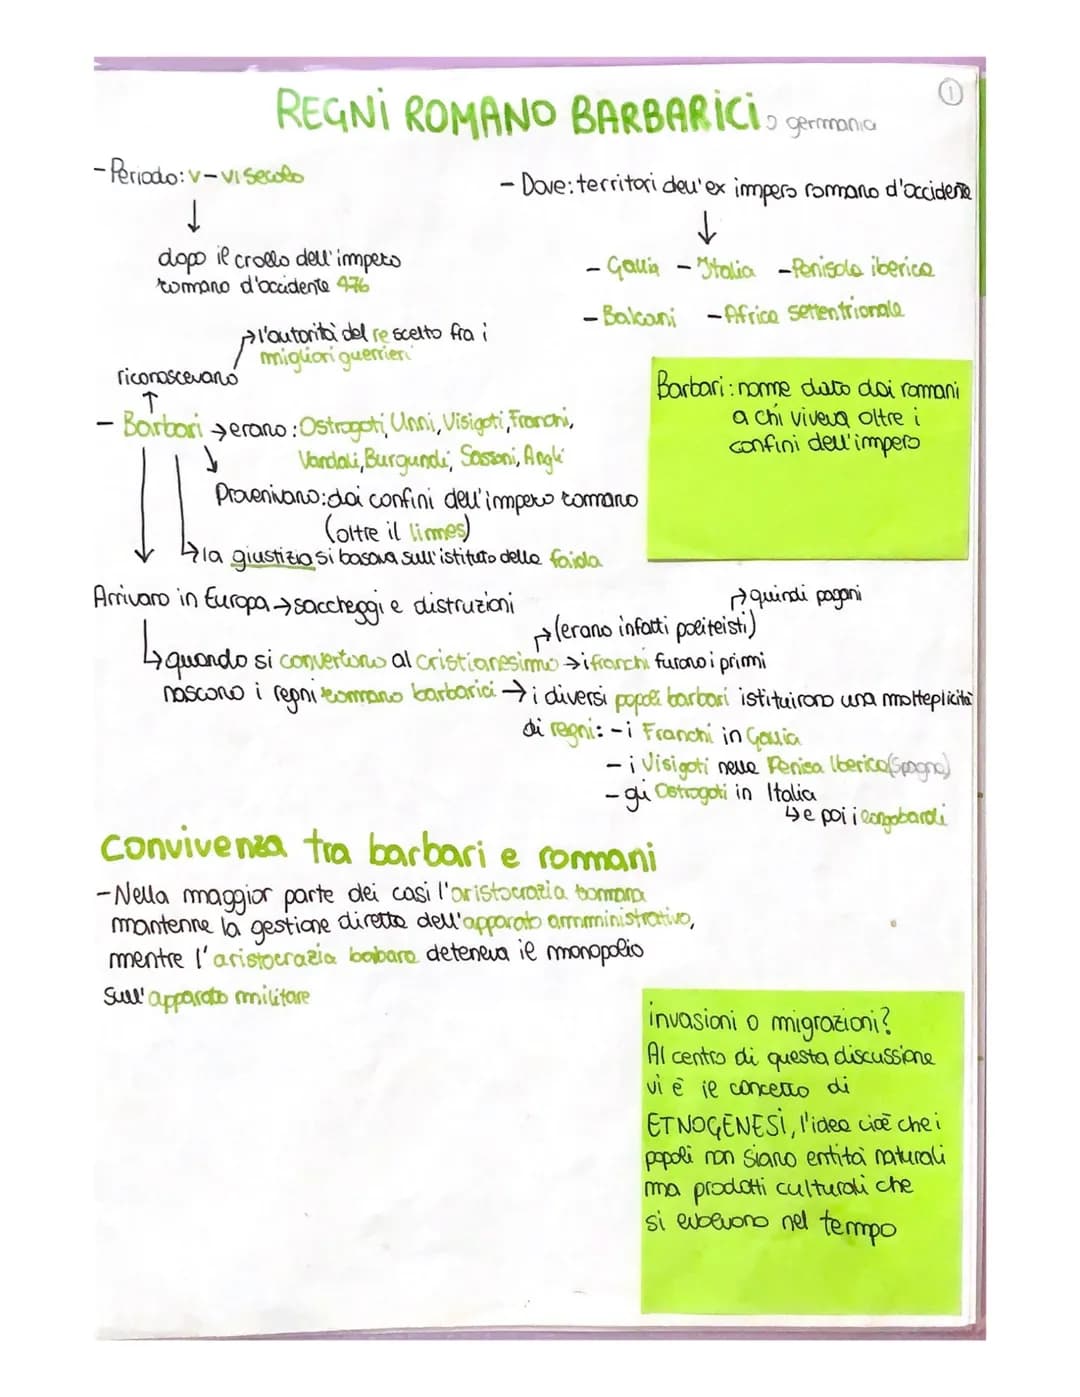 1
REGNI ROMANO BARBARICI o germania
- Periodo: V - VI Secolo
↓
dopo il crollo dell'impero
romano d'occidente 476
- Dove: territori dell'ex impero romano d'occidente
↓
- Gallia - Italia - Penisola iberica
- Balcani - Africa settentrionale
→ l'autorità del re scelto fra i
migliori guerrieri
riconoscevano
↑
- Barbari → erano: Ostrogoti, Unni, Visigoti, Franchi,
Vandali, Burgundi, Sassoni, Angli
Provenivano: dai confini dell'impero romano
(oltre il limes)
↳ la giustizia si basava sull'istituto della faida
Barbari: nome dato dai romani
a chi viveva oltre i
confini dell'impero
Arrivaro in Europa → saccheggi e distruzioni
→ quindi pagani
→ (erano infatti politeisti)
↳ quando si convertono al cristianesimo → i franchi furono i primi
nascono i regni romano barbarici → i diversi popoli barbari istituirono una molteplicità
di regni: - i Franchi in Gallia
- i Visigoti nelle Penisa Iberica (Spagna)
- gli Ostrogoti in Italia
↳ e poi i Longobardi
Convivenza tra barbari e romani
- Nella maggior parte dei casi l'aristocrazia romana
mantenne la gestione diretta dell'apparato amministrativo,
mentre l'aristocrazia babara deteneva il monopolio
Sull'apparato militare
invasioni o migrazioni?
Al centro di questa discussione
vi è il concetto di
ETNOGENESI, l'idea cioè che i
popoli non siano entità naturali
ma prodotti culturali che
si evolvono nel tempo